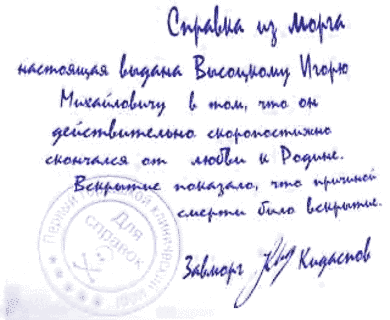 Справка из морга
настоящая выдана Высоцкому Игорю
Михайловичу в том, что он
действительно скоропостижно
скончался от любви к Родине.
Вскрытие показало, что причиной
смерти было вскрытие.
Для
справок
Завморг Кидаспов